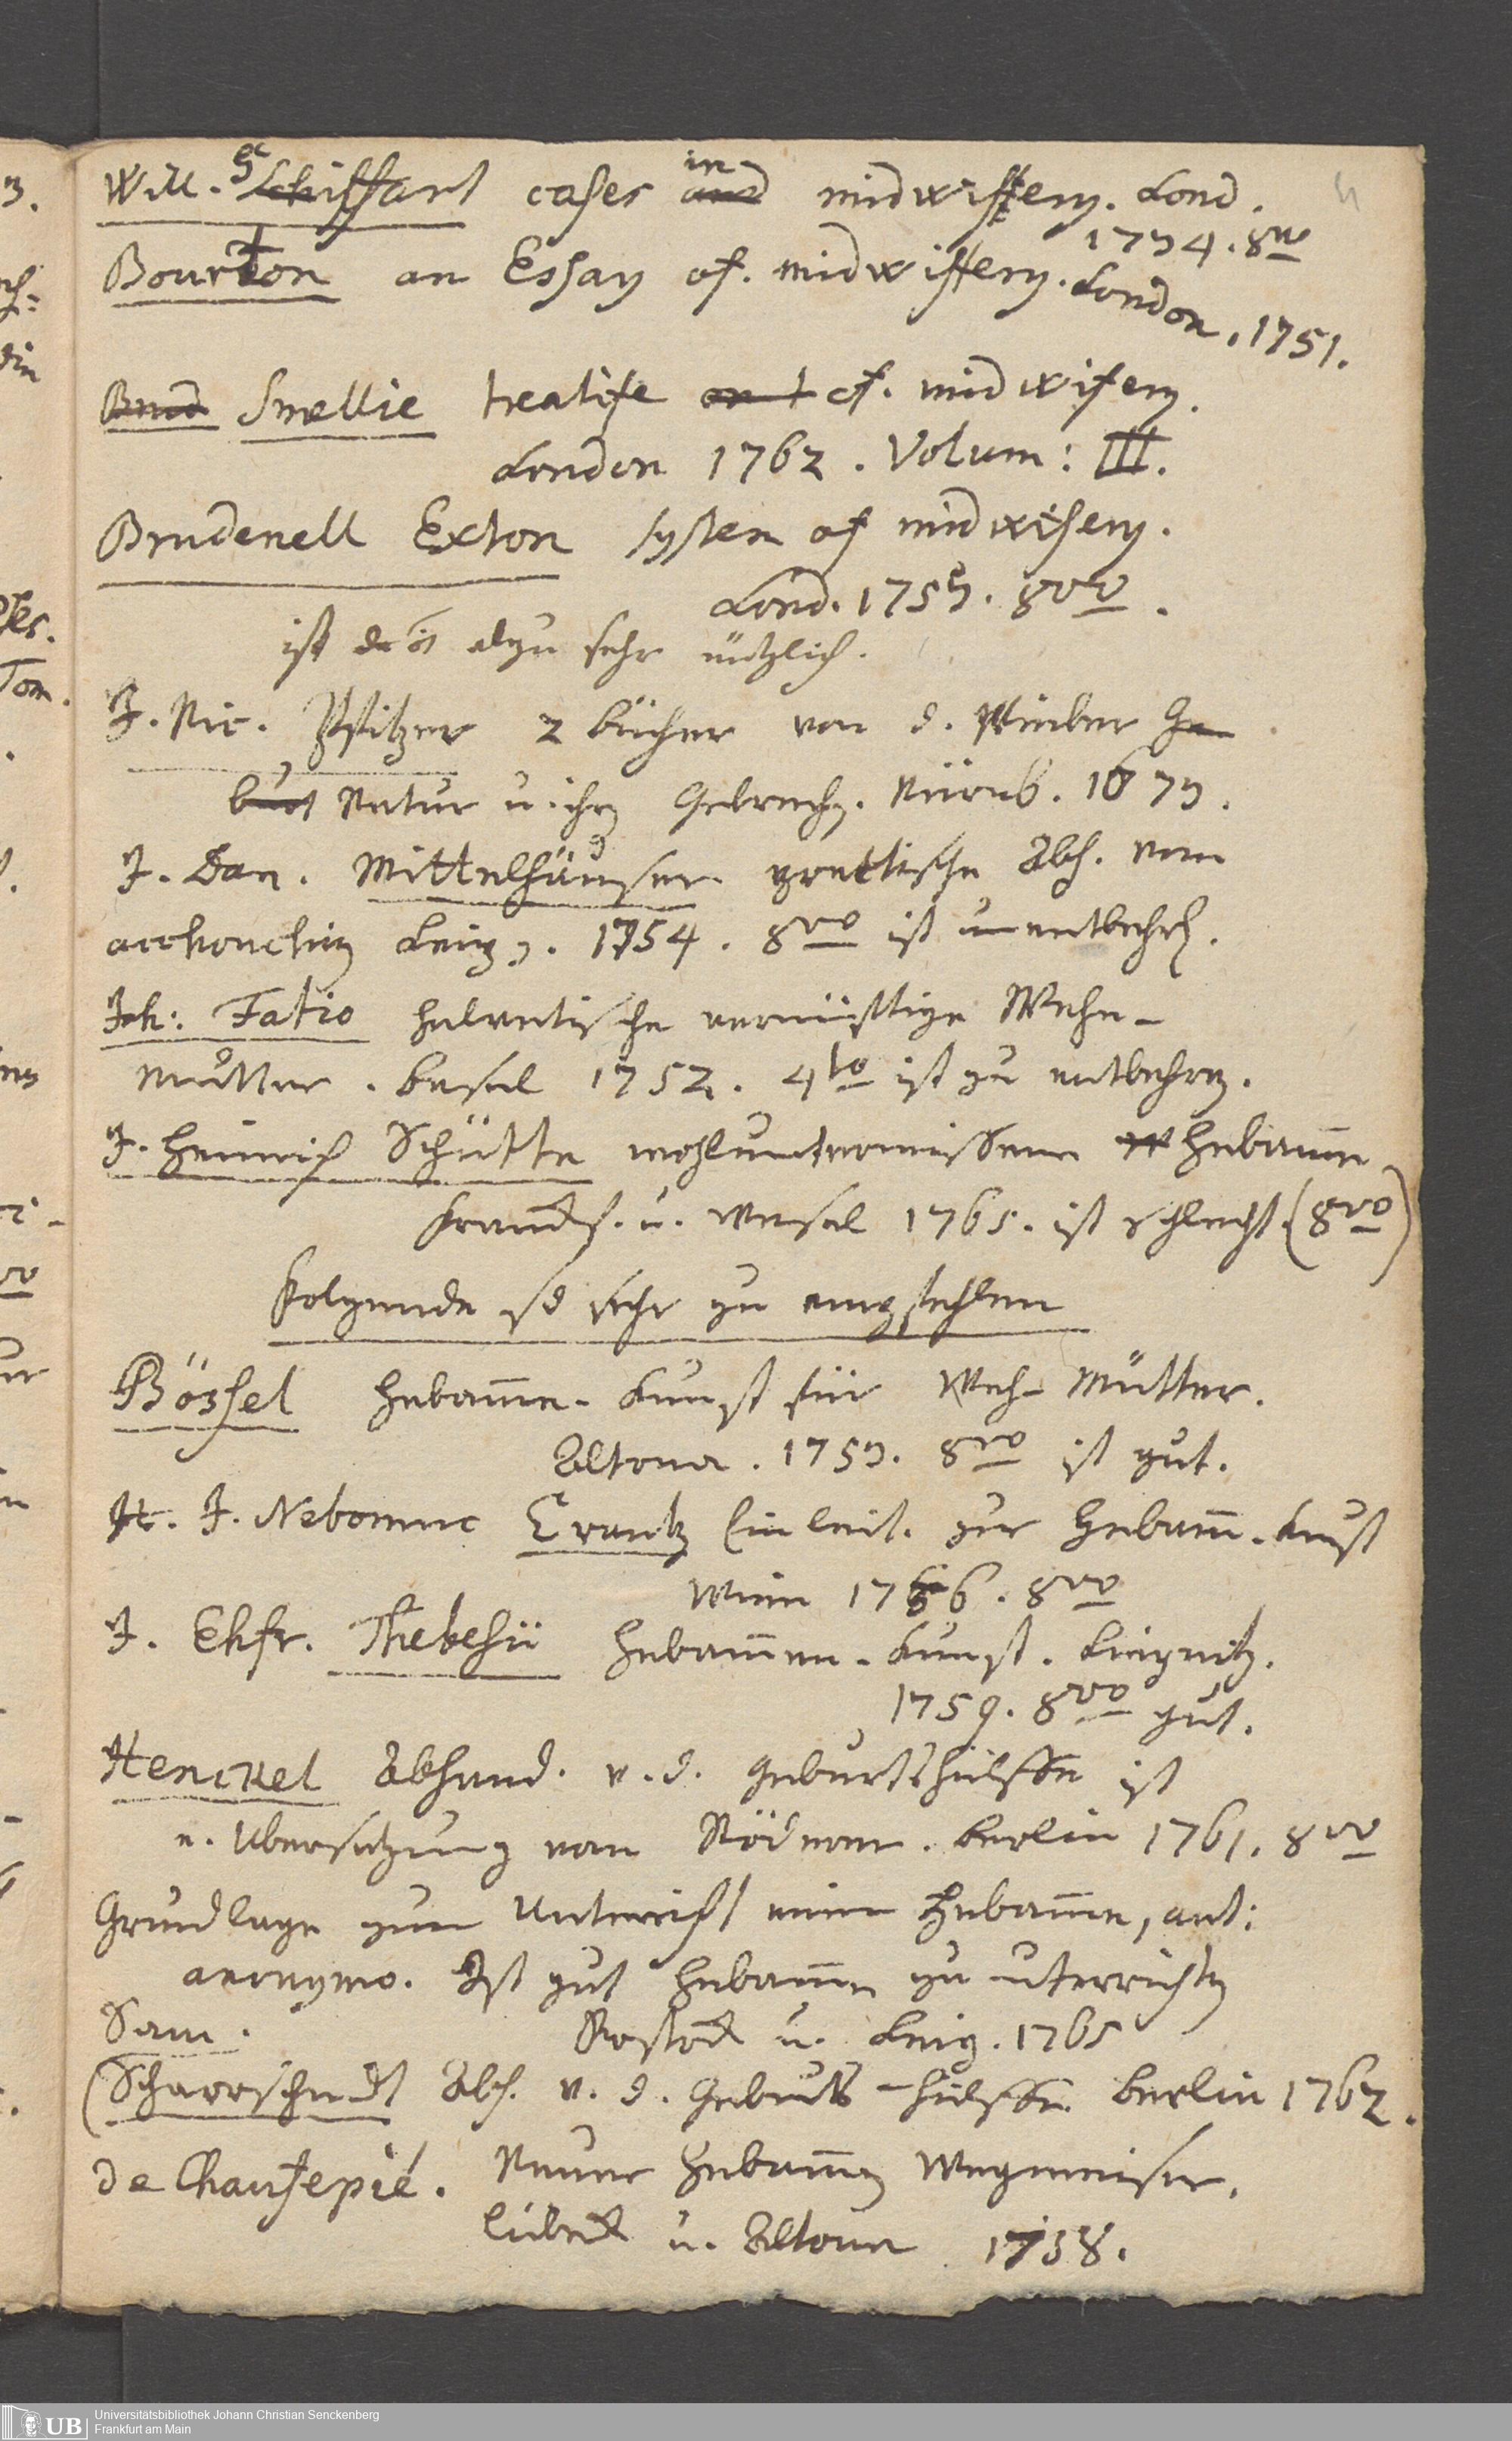 Will. Giffart cases in midwiffery. Lond.
1734. 8vo
Bourton an Essay of. midwiffery. London, 1751.
Smellie treatise of. midwifery.
London 1762. Volum: III.
Brudenell Exton system of midwifery.
Lond. 1755. 8vo.
ist alzu sehr nützlich.
J. Nic. Pfitzer 2 bücher von d. Weiber Ge
burt Natur u. ihrn Gebrechn. Nürnb. 1673.
J. Dan. Mittelhäuser practische Abh. vom
acckouchirn Leipz. 1754. 8vo ist unentbehrl.
Joh: Fatio helvetische vernünftige Wehe-
mutter. basel 1752. 4to ist zu entbehrn.
J. Heinrich Schütte wohlunterwiesene Hebamme
franckf. u. wesel 1765. ist schlecht (8vo)
folgende sd sehr zu empfehlen
Bössel Hebamme-Kunst für Weh-Mütter.
Altona. 1753. 8vo ist gut.
H. J. Nebomuc Crantz Einleit. zur Hebamm-Kunst
Wien 1766. 8vo
J. Ehfr. Thebesii Hebammen-Kunst. Liegnitz.
1759. 8vo gut.
Henckel Abhand. v. d. Geburtshülffe ist
e. Ubersetzung vom Röderer. berlin 1761. 8vo
Grundlage zum Unterricht einer Hebamme, aut:
anonymo. Ist gut Hebammen zu unterrichtn
Rostock u. Leipz. 1765
Sam.
(Schaarschmidt Abh. v. d. Geburts-hülffe berlin 1762.
de Chaufepié. Neuer Hebammn Wegweiser.
lübeck u. Altona 1758.
UB
Universitätsbibliothek Johann Christian Senckenberg
Frankfurt am Main